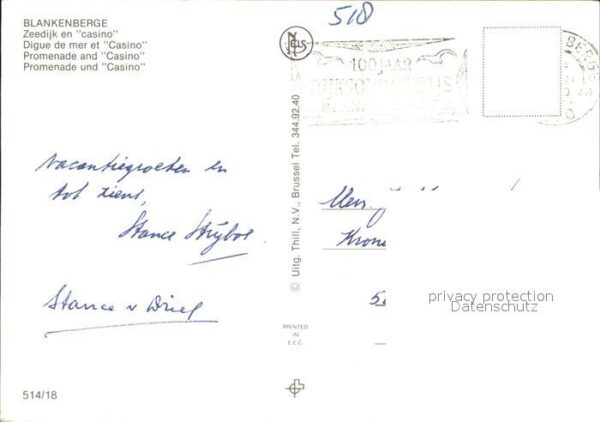 BLANKENBERGE
Zeedijk en "casino"
Digue de mer et "Casino"
Promenade and "Casino"
Promenade und "Casino"
518
100 JAAR
Vacantiegroeten en
tot ziens,
Stance Strijbos
Stance v Driel
© Uitg. Thill, N.V., Brussel Tel. 344.92.40
PRINTED
IN
E.E.C.
privacy protection
Datenschutz
514/18